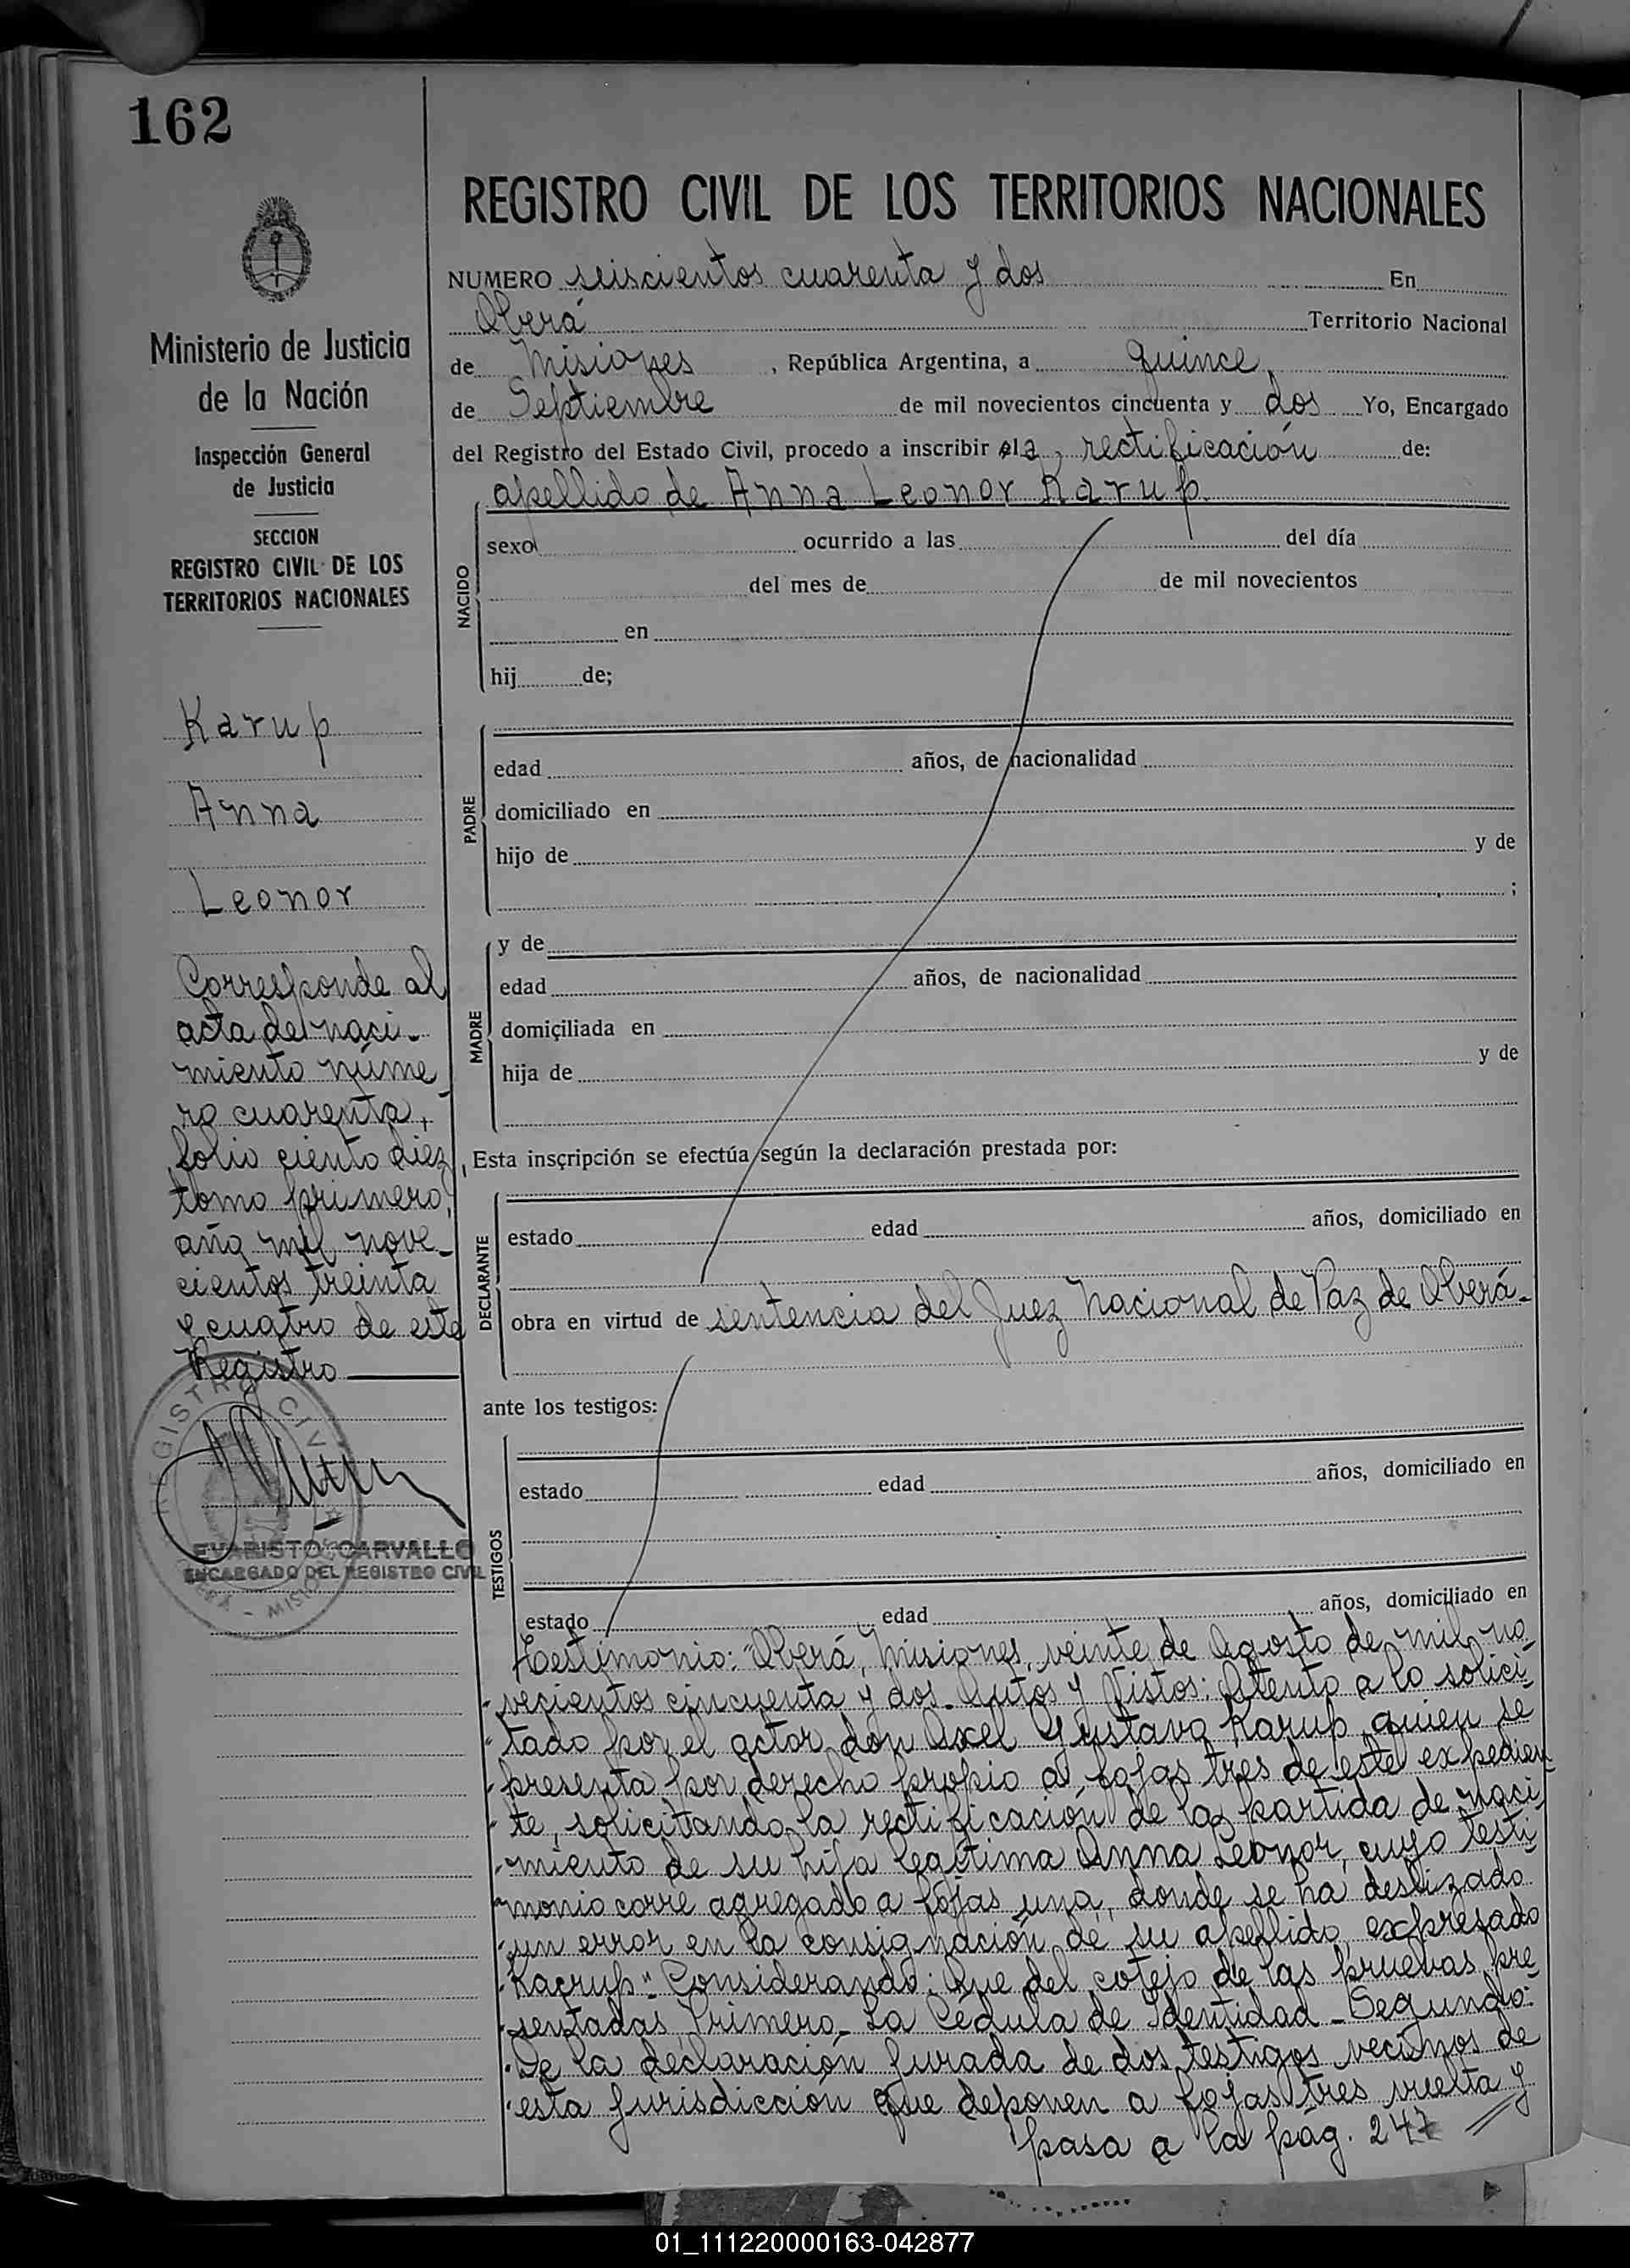 162
Ministerio de Justicia
de la Nación
Inspección General
de Justicia
SECCION
REGISTRO CIVIL DE LOS
TERRITORIOS NACIONALES
Karup
Anna
Leonor
Corresponde al
acta de naci-
miento núme
ro cuarenta,
folio ciento diez,
tomo primero,
año mil nove-
cientos treinta
y cuatro de este
Registro
REGISTRO CIVIL
EVARISTO CARVALLO
ENCARGADO DEL REGISTRO CIVIL
REGISTRO CIVIL DE LOS TERRITORIOS NACIONALES
NUMERO seiscientos cuarenta y dos En
Oberá Territorio Nacional
de Misiones , República Argentina, a quince,
de Septiembre de mil novecientos cincuenta y dos Yo, Encargado
del Registro del Estado Civil, procedo a inscribir la, rectificación de:
apellido de Anna Leonor Karup.
NACIDO
sexo ocurrido a las del día
del mes de de mil novecientos
en
hij de;
PADRE
edad años, de nacionalidad
domiciliado en
hijo de y de
;
MADRE
y de
edad años, de nacionalidad
domiciliada en
hija de y de
Esta inscripción se efectúa según la declaración prestada por:
DECLARANTE
estado edad años, domiciliado en
obra en virtud de sentencia del Juez Nacional de Paz de Oberá-
ante los testigos:
TESTIGOS
estado edad años, domiciliado en
estado edad años, domiciliado en
Testimonio: "Oberá, Misiones, veinte de Agosto de mil no
"vecientos cincuenta y dos- Autos y Vistos: Atento a lo solici
"tado por el actor don Axel Gustavo Karup, quien se
"presenta por derecho propio a fojas tres de este expedien
"te, solicitando la rectificación de la partida de naci
"miento de su hija legítima Anna Leonor, cuyo testi
"monio corre agregado a fojas una, donde se ha deslizado
"un error en la consignación de su apellido, expresado
"Kacrup". Considerando: Que del cotejo de las pruebas pre
"sentadas Primero- La Cédula de Identidad - Segundo:
"De la declaración jurada de dos testigos vecinos de
"esta jurisdicción que deponen a fojas tres vuelta y
pasa a la pág. 247
01_111220000163-042877